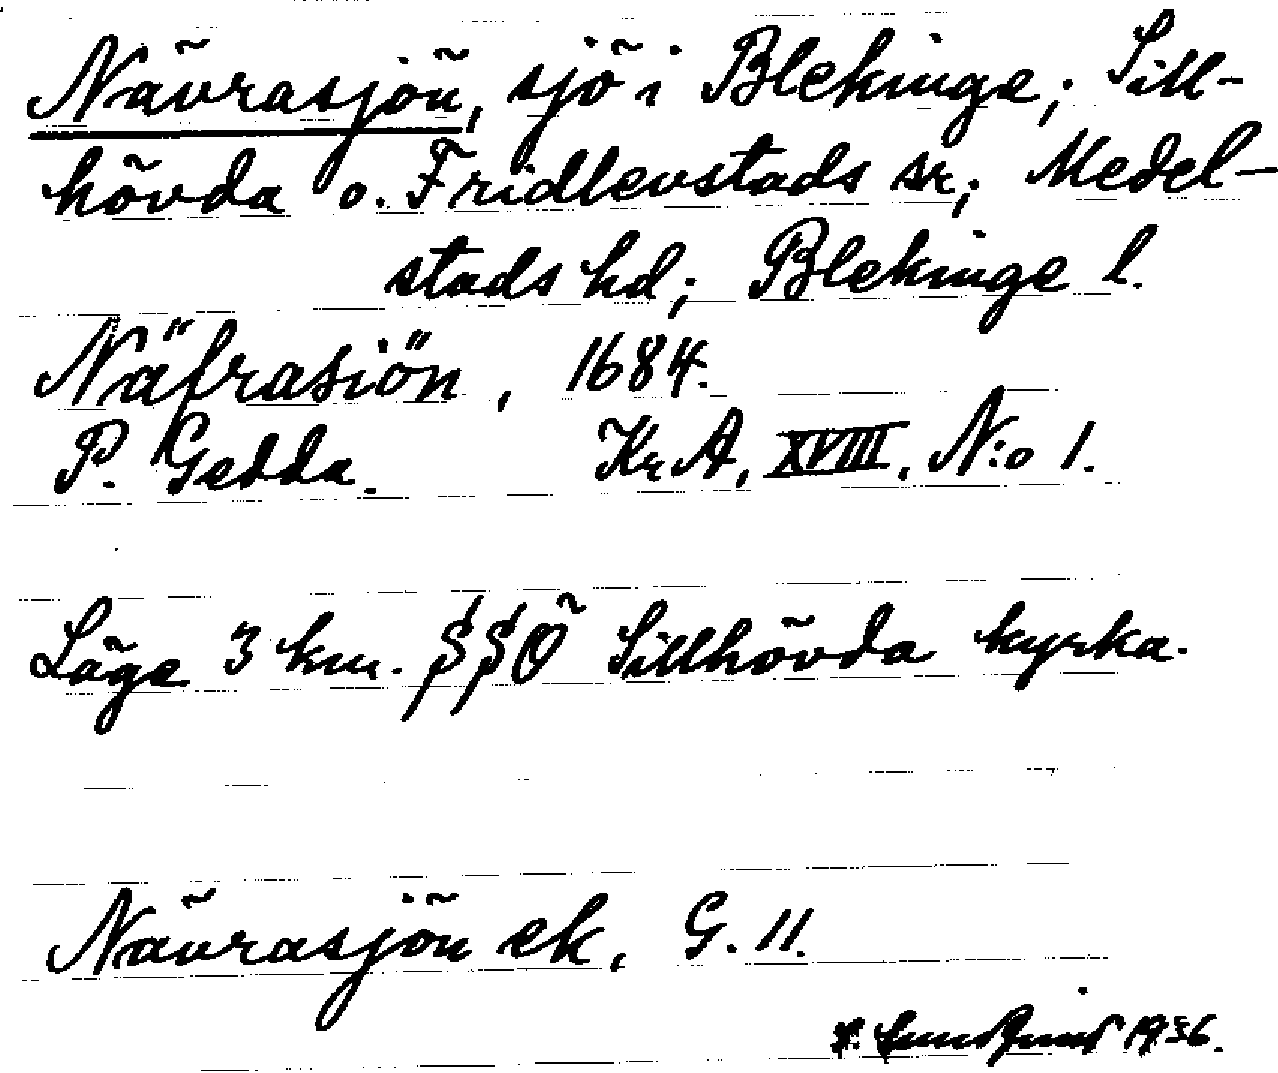 Nävrasjön, sjö i Blekinge; Sill-
hövda o. Fridlevstads sr; Medel-
stads hd; Blekinge l.
Näfrasiön, 1684.
P. Gedda. KrA, XVIII, N:o 1.
Läge 3 km. SSÖ Sillhövda kyrka.
Nävrasjön ek, G. 11.
1936.